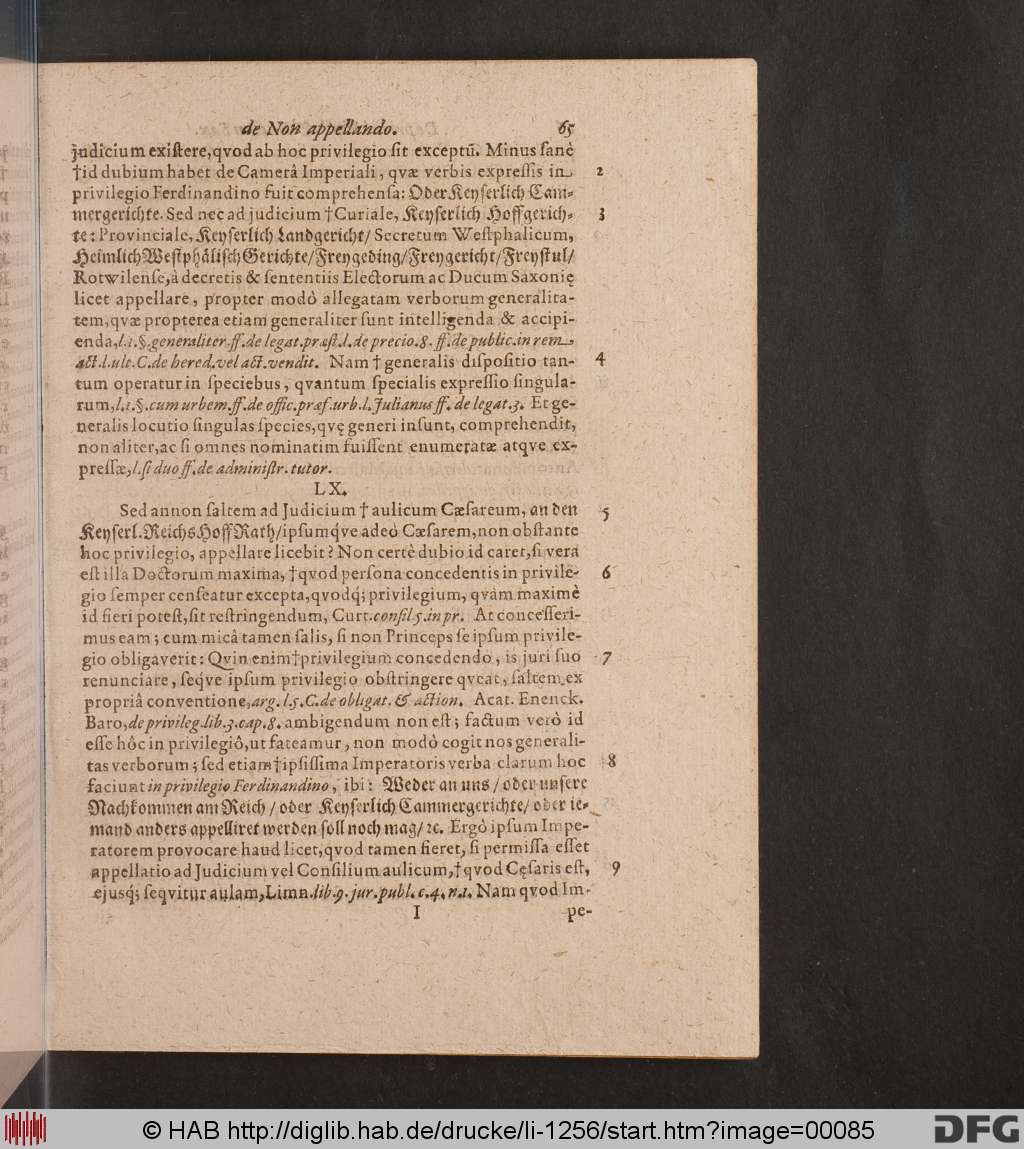 de Non appellando. 65
judicium existere, qvod ab hoc privilegio sit exceptũ. Minus sanè
†id dubium habet de Camerâ Imperiali, qvæ verbis expressis in 2
privilegio Ferdinandino fuit comprehensa: Oder Keyserlich Cam-
mergerichte. Sed nec ad judicium †Curiale, Keyserlich Hoffgerich- 3
te: Provinciale, Keyserlich Landgericht/ Secretum Westphalicum,
Heimlich Westphålisch Gerichte/ Freygeding/ Freygericht/ Freystul/
Rotwilense, à decretis & sententiis Electorum ac Ducum Saxonię
licet appellare, propter modò allegatam verborum generalita-
tem, qvæ propterea etiam generaliter sunt intelligenda & accipi-
enda, l.1.§.generaliter.ff.de legat.præst.l.de precio.8. ff.de public.in rem
act.l.ult.C.de hered.vel act.vendit. Nam † generalis dispositio tan- 4
tum operatur in speciebus, qvantum specialis expressio singula-
rum, l.1.§.cum urbem.ff.de offic.præf.urb.l.Julianus ff.de legat.3. Et ge-
neralis locutio singulas species, qvę generi insunt, comprehendit,
non aliter, ac si omnes nominatim fuissent enumeratæ atqve ex-
pressæ, l.si duo ff.de administr.tutor.
LX.
Sed annon saltem ad Judicium † aulicum Cæsareum, an den 5
Keyserl. Reichs Hoff Rath/ ipsumq́ve adeò Cæsarem, non obstante
hoc privilegio, appellare licebit? Non certè dubio id caret, si vera
est illa Doctorum maxima, †qvod persona concedentis in privile- 6
gio semper censeatur excepta, qvodq́; privilegium, qvàm maximè
id fieri potest, sit restringendum, Curt.consil.5.in pr. At concesseri-
mus eam; cum micâ tamen salis, si non Princeps se ipsum privile-
gio obligaverit: Qvin enim†privilegium concedendo, is juri suo 7
renunciare, seqve ipsum privilegio obstringere qveat, saltem ex
propriâ conventione, arg.l.5.C.de obligat. & action. Acat. Enenck.
Baro, de privileg.lib.3.cap.8. ambigendum non est; factum verò id
esse hôc in privilegiô, ut fateamur, non modò cogit nos generali-
tas verborum; sed etiam†ipsissima Imperatoris verba clarum hoc 8
faciunt in privilegio Ferdinandino, ibi: Weder an uns/ oder unsere
Nachkommen am Reich/ oder Keyserlich Cammergerichte/ oder ie-
mand anders appelliret werden soll noch mag/ ꝛc. Ergò ipsum Impe-
ratorem provocare haud licet, qvod tamen fieret, si permissa esset
appellatio ad Judicium vel Consilium aulicum, †qvod Cęsaris est, 9
ejusq́; seqvitur aulam, Limn.lib.9.jur.publ.c.4.n.1. Nam qvod Im-
I pe-
© HAB http://diglib.hab.de/drucke/li-1256/start.htm?image=00085
DFG